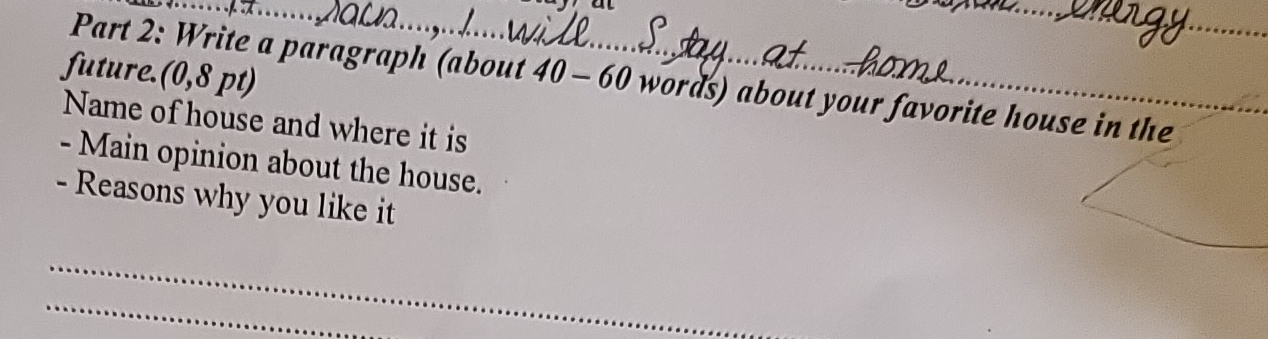 I will stay at home energy
Part 2: Write a paragraph (about 40 – 60 words) about your favorite house in the
future.(0,8 pt)
Name of house and where it is
- Main opinion about the house.
- Reasons why you like it